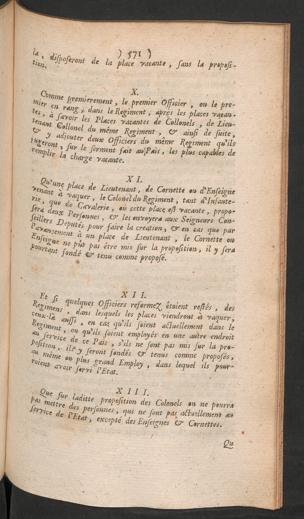 ( 571 )
la, disposeront de la place vacante, sans la proposi-
tion.
X.
Comme premierement, le premier Officier, ou le pre-
mier en rang, dans le Regiment, après les places vacan-
tes, à savoir les Places vacantes de Collonels, de Lieu-
tenant Collonel du même Regiment, & ainsi de suite,
& y ajouter deux Officiers du même Regiment qu'ils
jugeront, sur le serment fait au Païs, les plus capables de
remplir la charge vacante.
XI.
Qu'une place de Lieutenant, de Cornette ou d'Enseigne
venant à vaquer, le Colonel du Regiment, tant d'Infante-
rie, que de Cavalerie, où cette place est vacante, propo-
sera deux Personnes, & les envoyera aux Seigneurs Con-
seillers Deputés pour faire la creation, & en cas que par
l'avancement à un place de Lieutenant, le Cornette ou
Enseigne ne fho pas être mis sur la proposition, il y sera
pourtant fondé & tenu comme proposé.
XII.
Et si quelques Officiers reformez étoient restés, des
Regiment, dans lesquels les places viendront à vaquer,
ceux-là aussi, en cas qu'ils soient actuellement dans le
Regiment, ou qu'ils soient employés en une autre endroit
au service de ce Païs, s'ils ne sont pas mis sur la pro-
position, il y seront fondés & tenus comme proposés,
au même ou plus grand Employ, dans lequel ils pour-
roient avoir servi l'Etat.
XIII.
Que sur laditte proposition des Colonels on ne pourra
pas mettre des personnes, qui ne sont pas actuellement au
service de l'Etat, excepté des Enseignes & Cornettes.
Qu